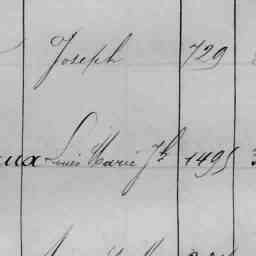 Joseph 729
Louis Marie Jh 1495